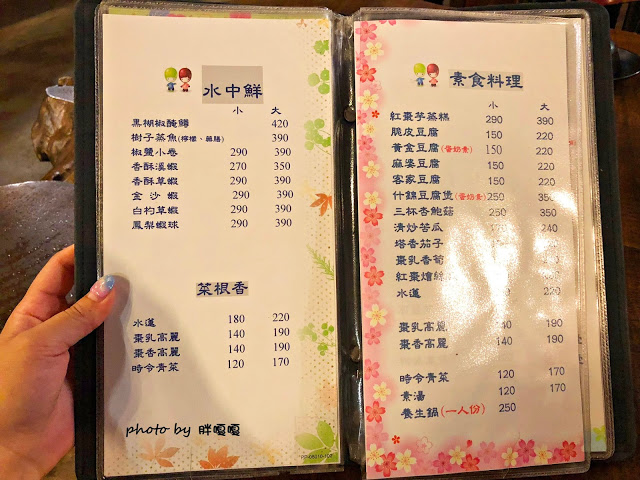 水中鮮
小 大
黑椒醃鱘 420
樹子蒸魚(檸檬、藥膳) 390
椒鹽小卷 290 390
香酥溪蝦 270 350
香酥草蝦 290 390
金沙蝦 290 390
白灼草蝦 290 390
鳳梨蝦球 290 390
菜根香
水蓮 180 220
棗乳高麗 140 190
棗香高麗 140 190
時令青菜 120 170
photo by 胖嘎嘎
素食料理
小 大
紅棗芋蒸糕 290 390
脆皮豆腐 150 220
黃金豆腐(蛋奶素) 150 220
麻婆豆腐 150 220
客家豆腐 150 220
什錦豆腐煲(蛋奶素) 250 350
三杯杏鮑菇 250 350
清炒苦瓜 240
塔香茄子
棗乳香筍
紅棗燴絲
水蓮 220
棗乳高麗 140 190
棗香高麗 140 190
時令青菜 120 170
素湯 120 170
養生鍋(一人份) 250